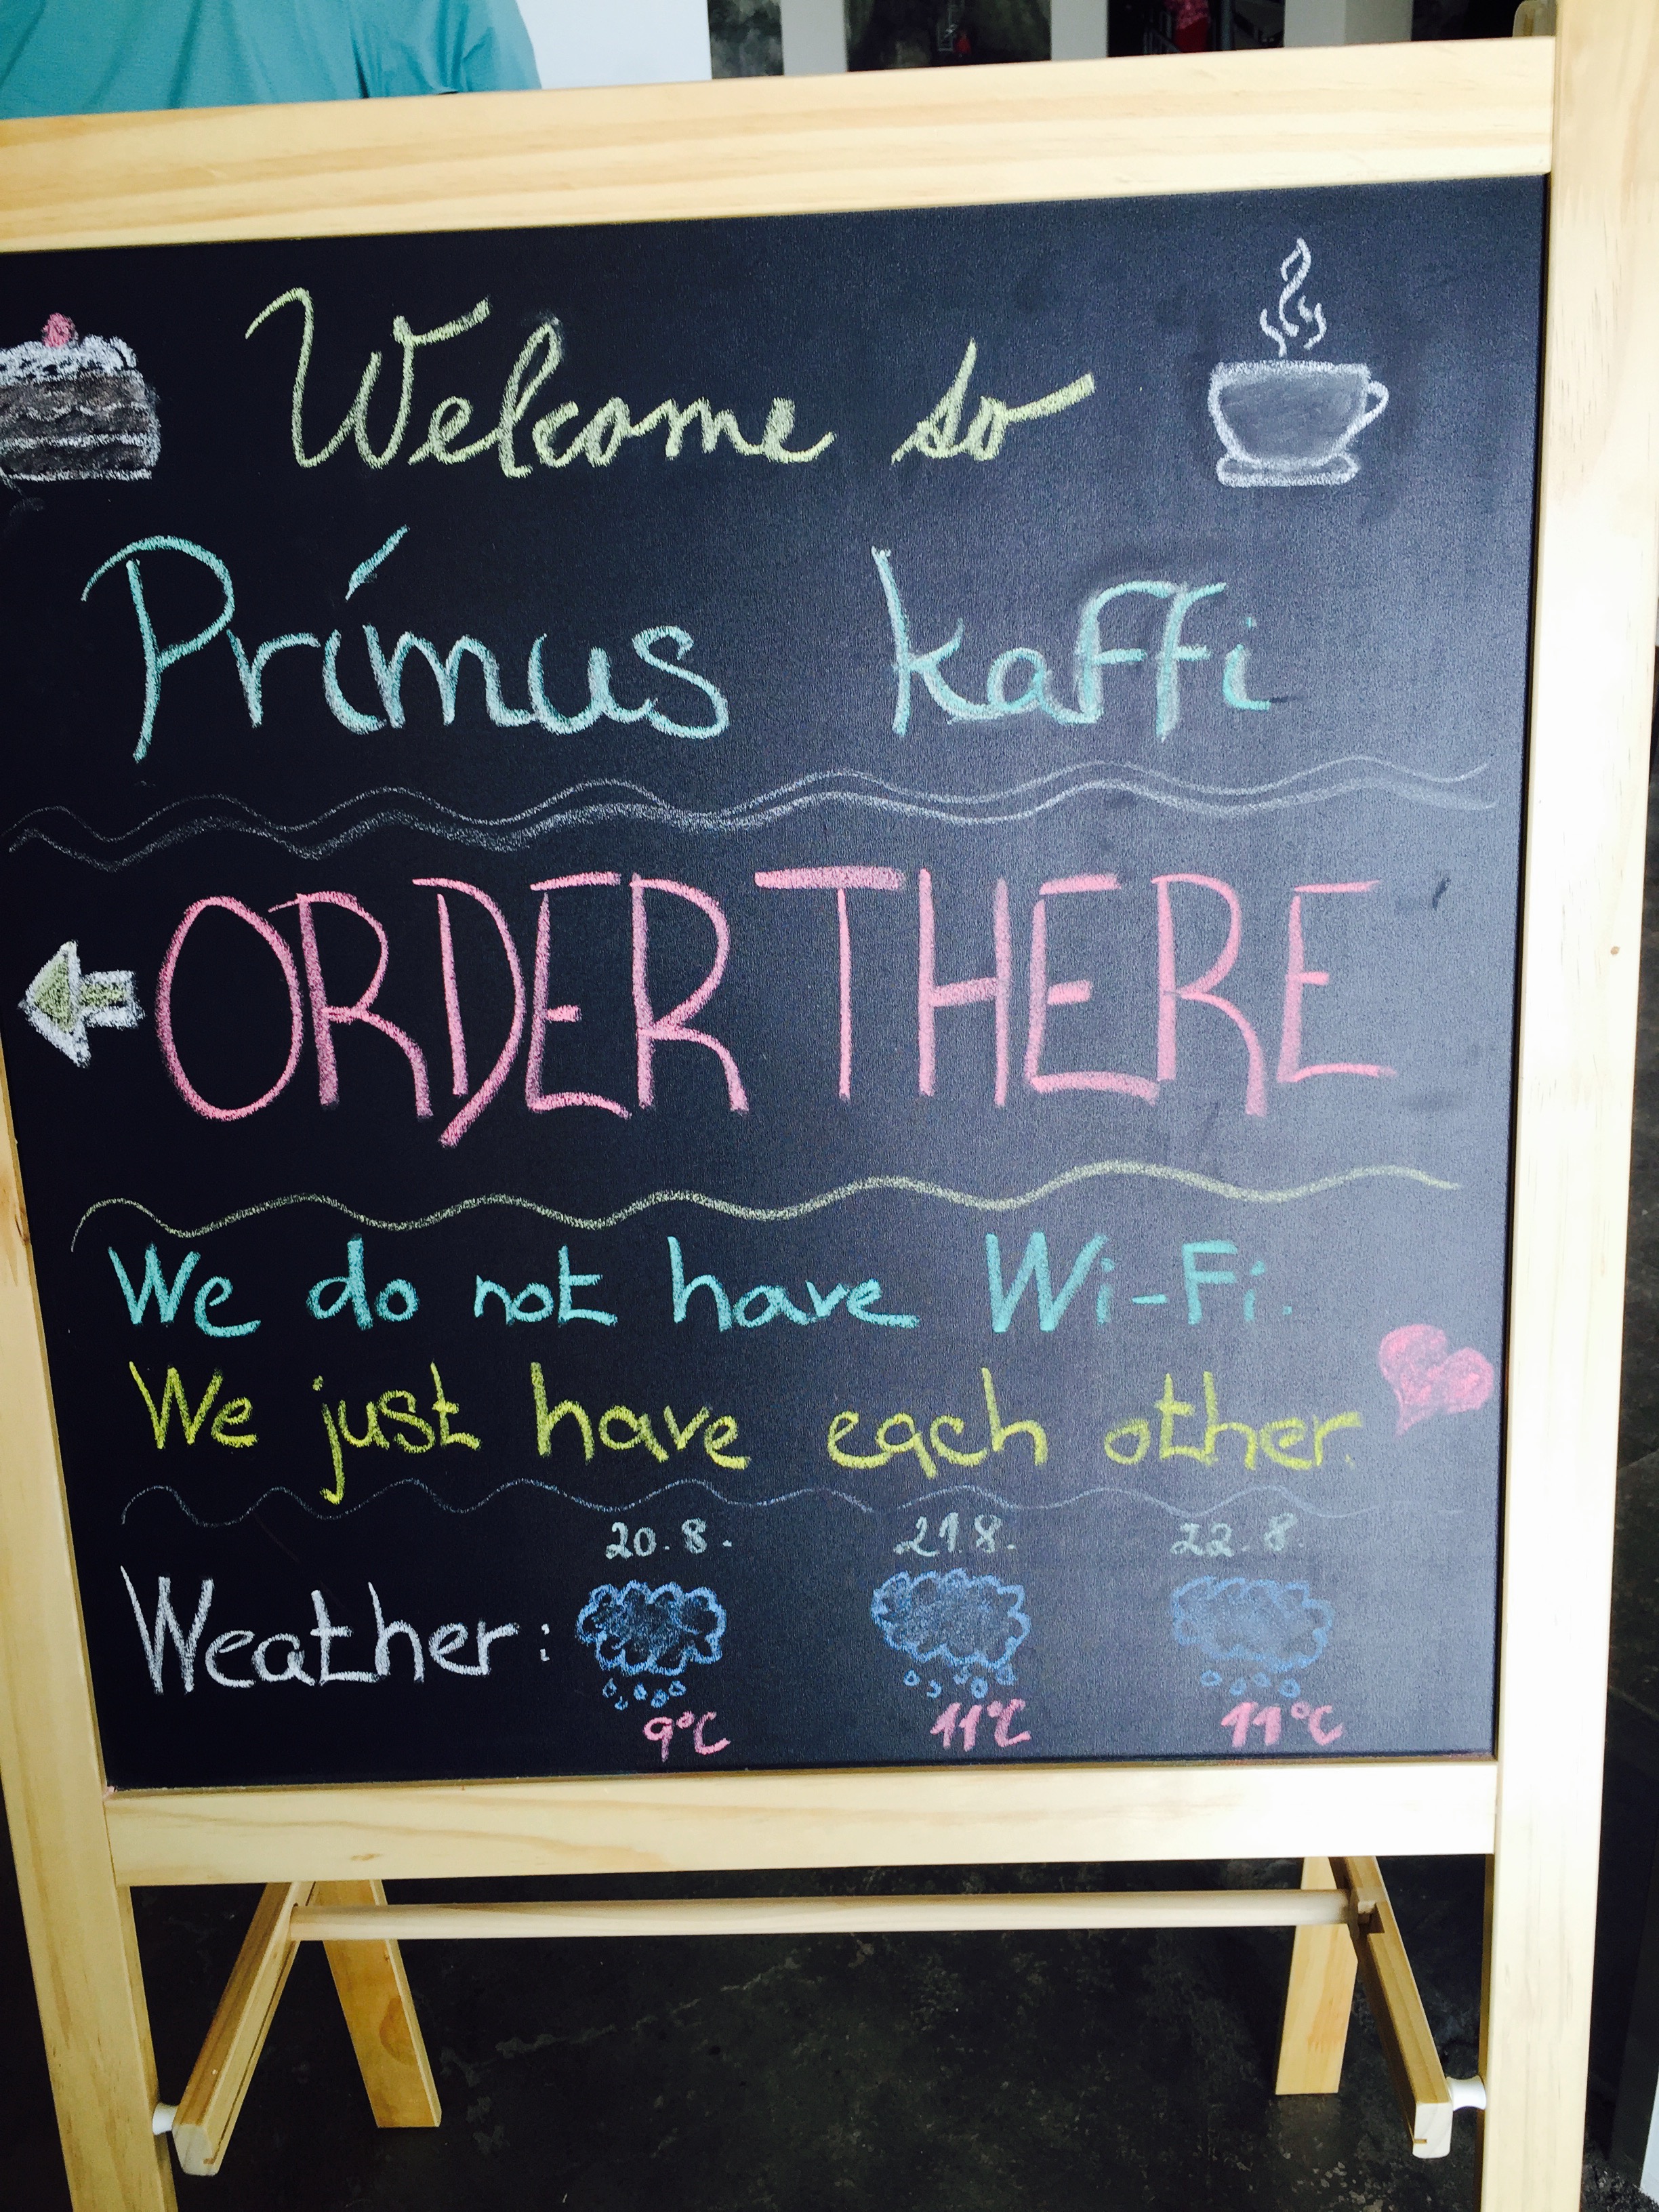 Welcome to
Prímus kaffi
ORDER THERE
We do not have Wi-Fi.
We just have each other.
20.8. 21.8. 22.8.
Weather:
9°C 11°C 11°C